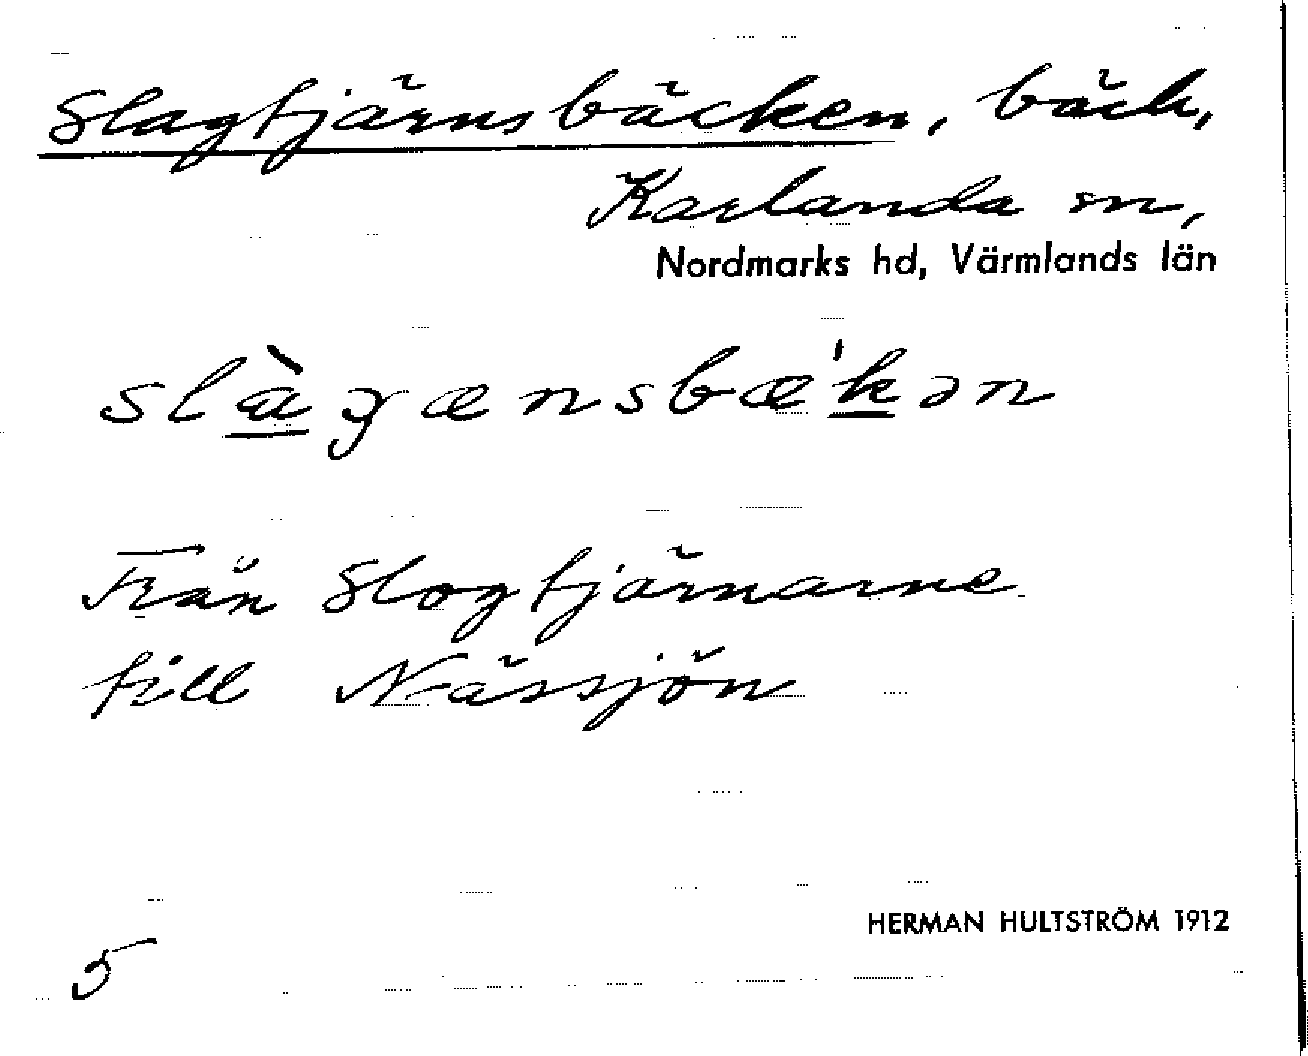 Slagtjärnsbäcken, bäck,
Karlanda sn,
Nordmarks hd, Värmlands län
slàgænsbæ'kən
Från Slogtjärnarne
till Nässjön
HERMAN HULTSTRÖM 1912
5